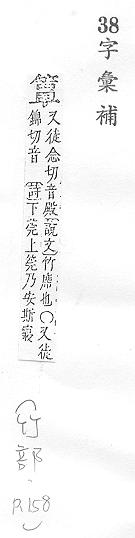 38字彙補
簟
又徒念切音殿說文竹席也〇又徒
錦切音 詩下莞上筦乃安斯寢
(竹部. P.158)